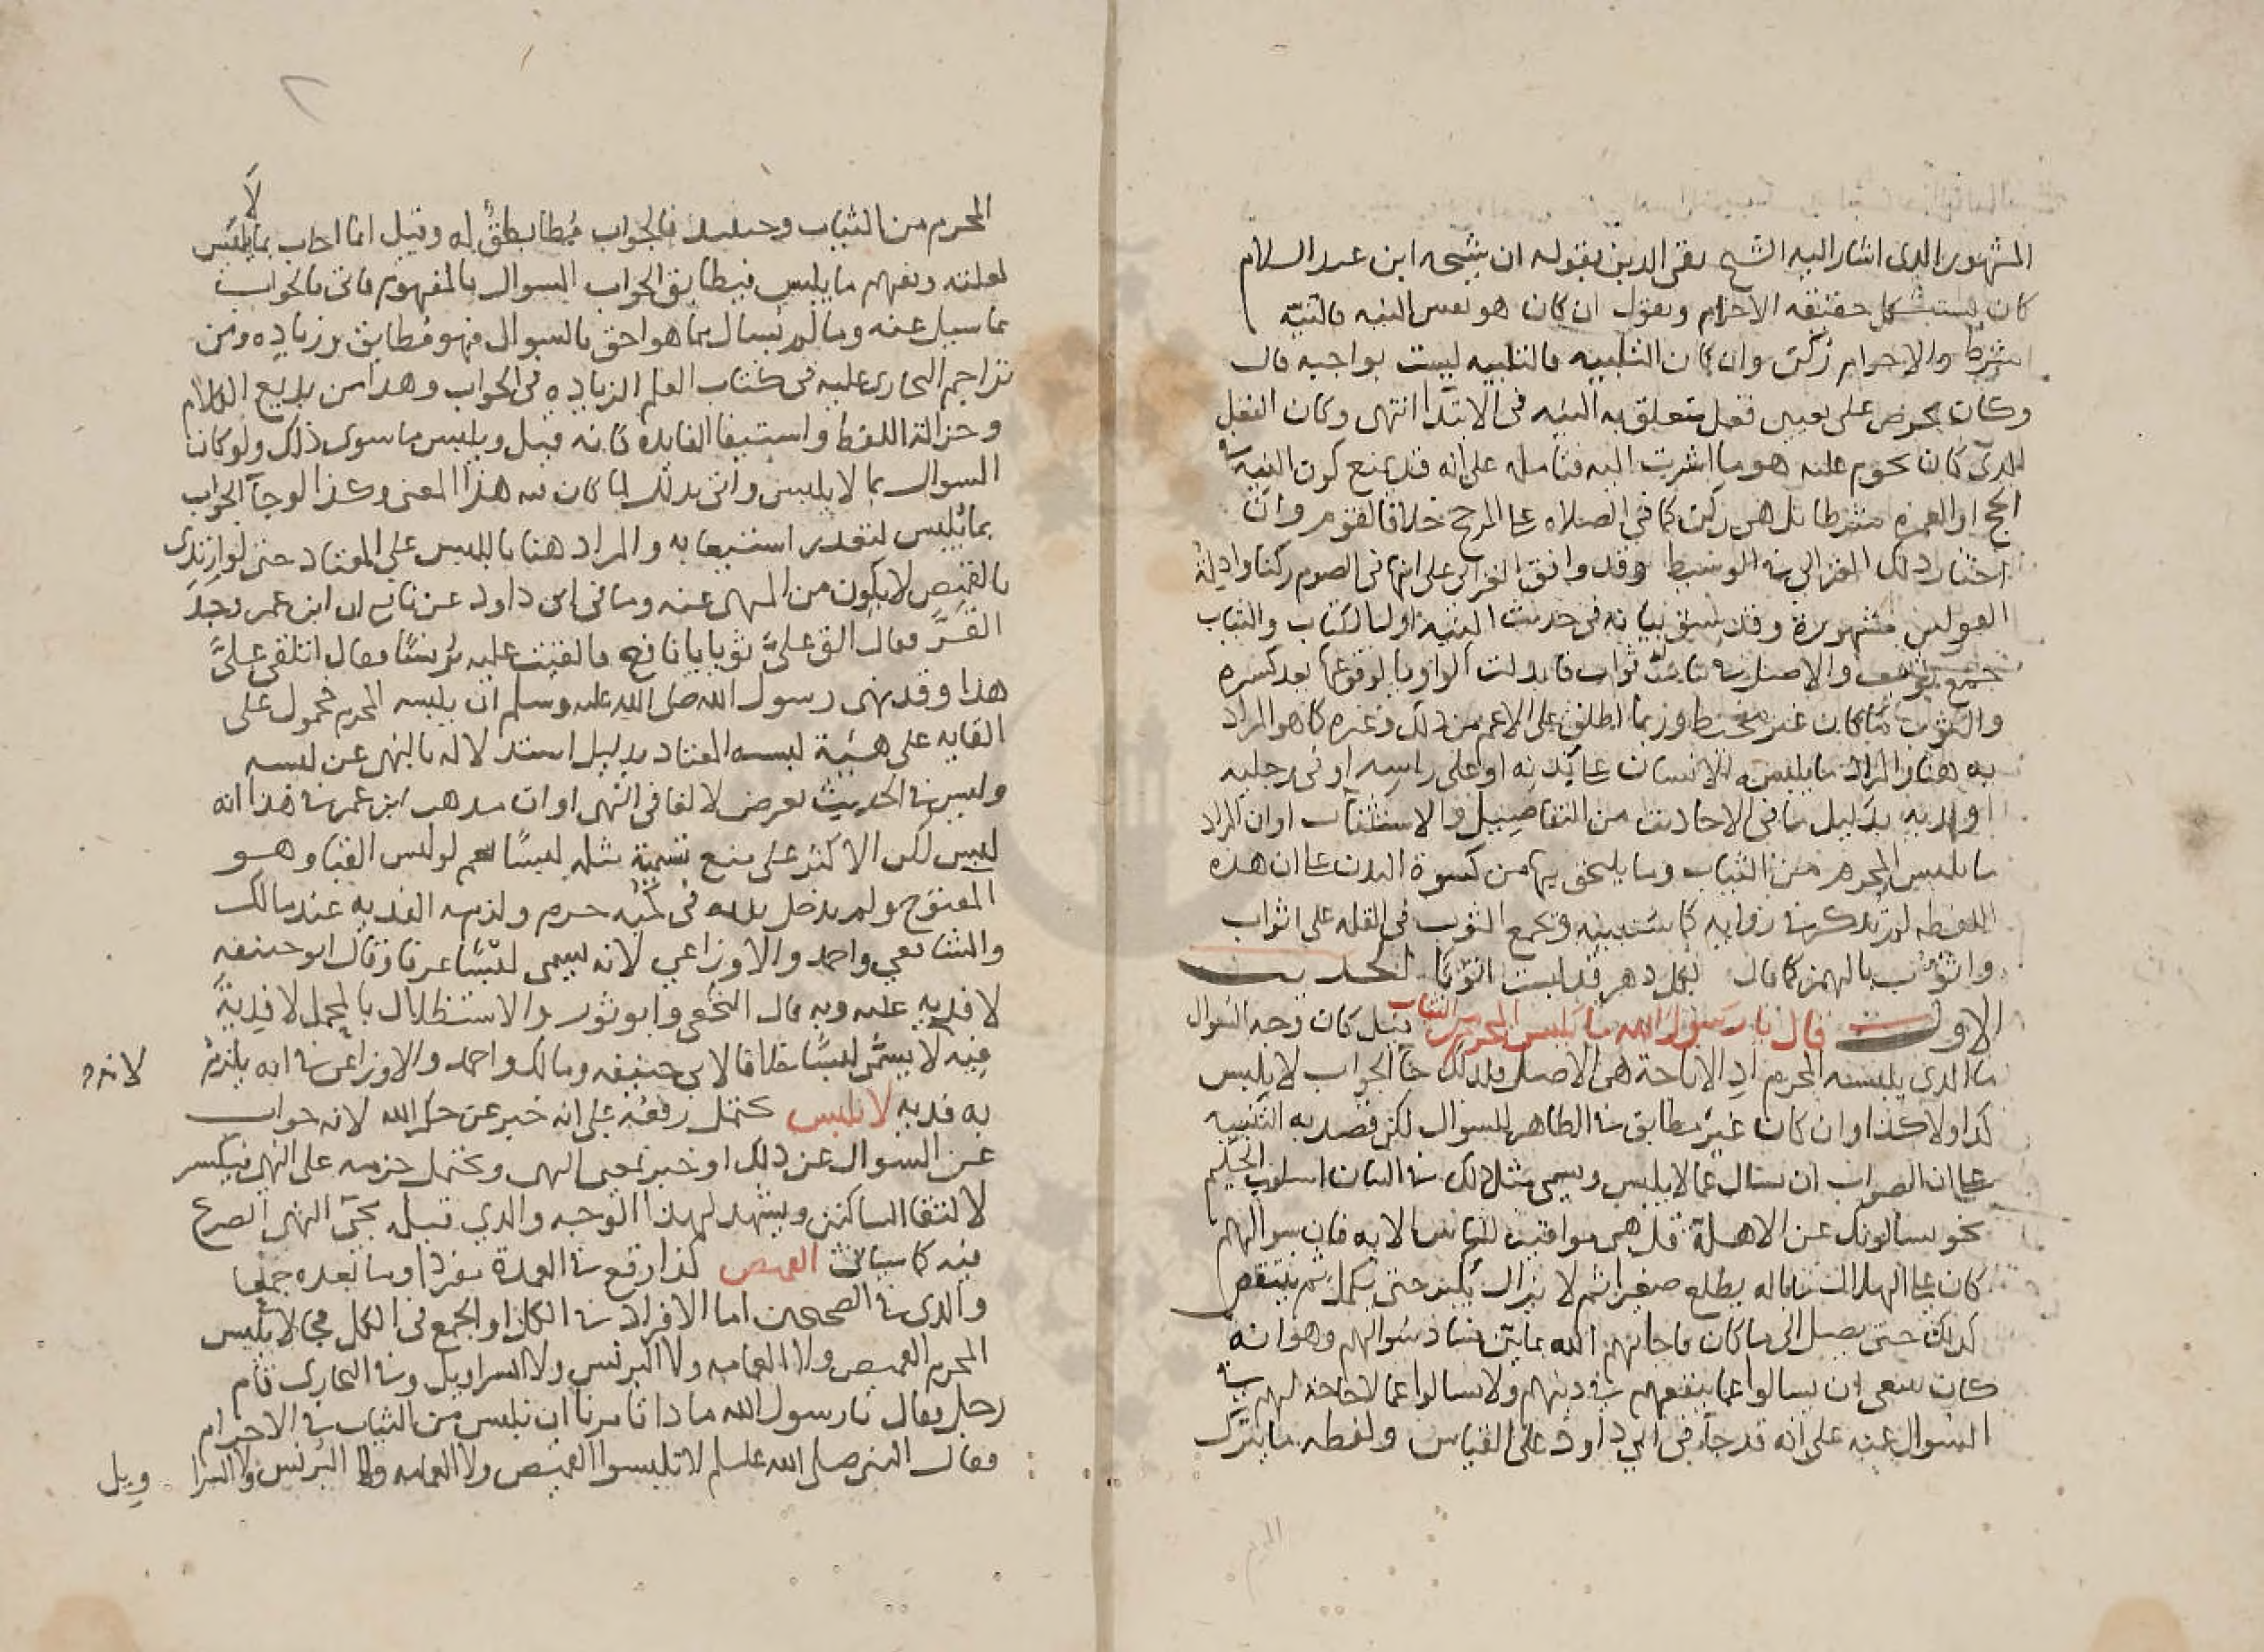 المشهور الذي اشار اليه الشيخ تقي الدين بقوله ان شيخه ابن عبد السلام
كان يستشكل حقيقه الاحرام ويقول ان كان هو نفس النيه فالنيّه
شرط والاحرام ركن وان كان التلبيه فالتلبيه ليست بواجبه قال
وكان يحرض على تعيين فعل متعلق به النيه في الابتدا انتهى وكان الفعل
الذي كان يحوم عليه هو ما اشرت اليه فتامله على انه قد يمنع كون النيه في
الحج او العمره شرطا بل هي ركن كما في الصلاه على المرجح خلافا لقوم وان
اختار ذلك الغزالي في الوسيط وقد وافق الغزالي على انها في الصوم ركنا وادلة
القولين مشهورة وقد سبق بيانه في حديث النيه اول الكتاب والثياب
جمع ثوب والاصل في ثياب ثواب فابدلت الواو يا لوقوعها بعد كسره
والثوب ما كان غير مخيط وربما اطلق على الاعم من ذلك وغيره كما هو المراد
به هنا والمراد ما يلبسه الانسان على بدنه او على راسه او في رجليه
او يديه بدليل ما في الاحاديث من التفاصيل والاستثناات او ان المراد
ما يلبس المحرم من الثياب وما يلحق بها من كسوة البدن على ان هذه
اللفظه لم تذكر في روايه كما ستبينه وتجمع الثوب في القله على اثواب
واثؤب بالهمز كما قال لكل دهر قد لبست اثؤبا الحديث
الاول قال يا رسول الله ما يلبس المحرم من الثياب قيل كان وجه السوال
ما الذي يلبسه المحرم اذ الاباحة هي الاصل ولذلك جا الجواب لا يلبس
كذا ولا كذا وان كان غير مطابق في الظاهر للسوال لكن قصد به التنبيه
على ان الصواب ان يسال عما لا يلبس ويسمى مثل ذلك في البيان اسلوب الحكيم
نحو يسالونك عن الاهلة قل هي مواقيت للناس الايه فان سوالهم
كان على الهلال ما باله يطلع صغيرا ثم لا يزال يكبر حتى يكمل ثم ينقص
كذلك حتى يصل الى ما كان فاجابهم الله بما بين فساد سوالهم وهو انه
كان ينبغي ان يسالوا عما ينفعهم في دينهم ولا يسالوا عما لا حاجة لهم في
السوال عنه على انه قد جاء في ابي داود على القياس ولفظه ما يترك
المحرم من الثياب وحينئذ فالجواب مُطابطق له وقيل انما اجاب بما لا يلبس
لعلته ويفهم ما يلبس فيطابق الجواب السوال بالمفهوم فاتى بالجواب
عما سيل عنه وما لم يسال مما هو احق بالسوال فهو مطابق وزياده ومن
تراجم البخاري عليه في كتاب العلم الزياده في الجواب وهذا من بديع الكلام
وجزالة اللفظ واستيفا الفايده كانه قيل ويلبس ما سوى ذلك ولو كان
السوال بما لا يلبس واتى بذلك لما كان فيه هذا المعنى وكذا لو جآ الجواب
بما يلبس لتعذر استيعابه والمراد هنا باللبس على المعتاد حتى لو ارتدى
بالقميص لا يكون من المنهى عنه وما في ابي داود عن نافع ان ابن عمر وجد
القرّ فقال الق علىّ ثوبا يا نافع فالقيت عليه برنسًا فقال اتلقي علىّ
هذا وقد نهى رسول الله صلى الله عليه وسلم ان يلبسه المحرم محمول على
القايه على هيئة لبسه المعتاد بدليل استدلاله بالنهى عن لبسه
وليس في الحديث تعرض لالقا في النهى او ان مذهب ابن عمر في هذا انه
لبس لكن الاكثر على منع تسمية مثله لبسًا نعم لو لبس القبا وهو
المفتوح ولم يدخل يديه في كمّيه حرم ولزمه الفديه عند مالك
والشافعي واحمد والاوزاعي لانه يسمى لبسًا عرفا وقال ابو حنيفه
لا فديه عليه وبه قال النخعي وابو ثور والاستظلال بالمحمل لا فدية
فيه لا يسمّى لبسًا خلافا لابي حنيفه ومالك واحمد والاوزاعي في انه يلزمه لانه
به فديه لا يلبس يحتمل رفعه على انه خبر عن حكم الله لانه جواب
عن السوال عن ذلك او خبر بمعنى النهى ويحتمل جزمه على النهى فيكسر
لالتقا الساكنين ويشهد لهذا الوجه والذي قبله مجي النهى الصريح
فيه كما سياتى القميص كذا وقع في العمدة مفردا وما بعده جمعا
والذي في الصحيحين اما الافراد في الكل او الجمع في الكل فجا لا يلبس
المحرم القميص ولا العمامه ولا البرنس ولا السراويل وفي البخاري قام
رجل فقال يا رسول الله ماذا تامرنا ان نلبس من الثياب في الاحرام
فقال النبي صلى الله عليه وسلم لا تلبسوا القميص ولا العمامه ولا البرنس ولا السرا ويل